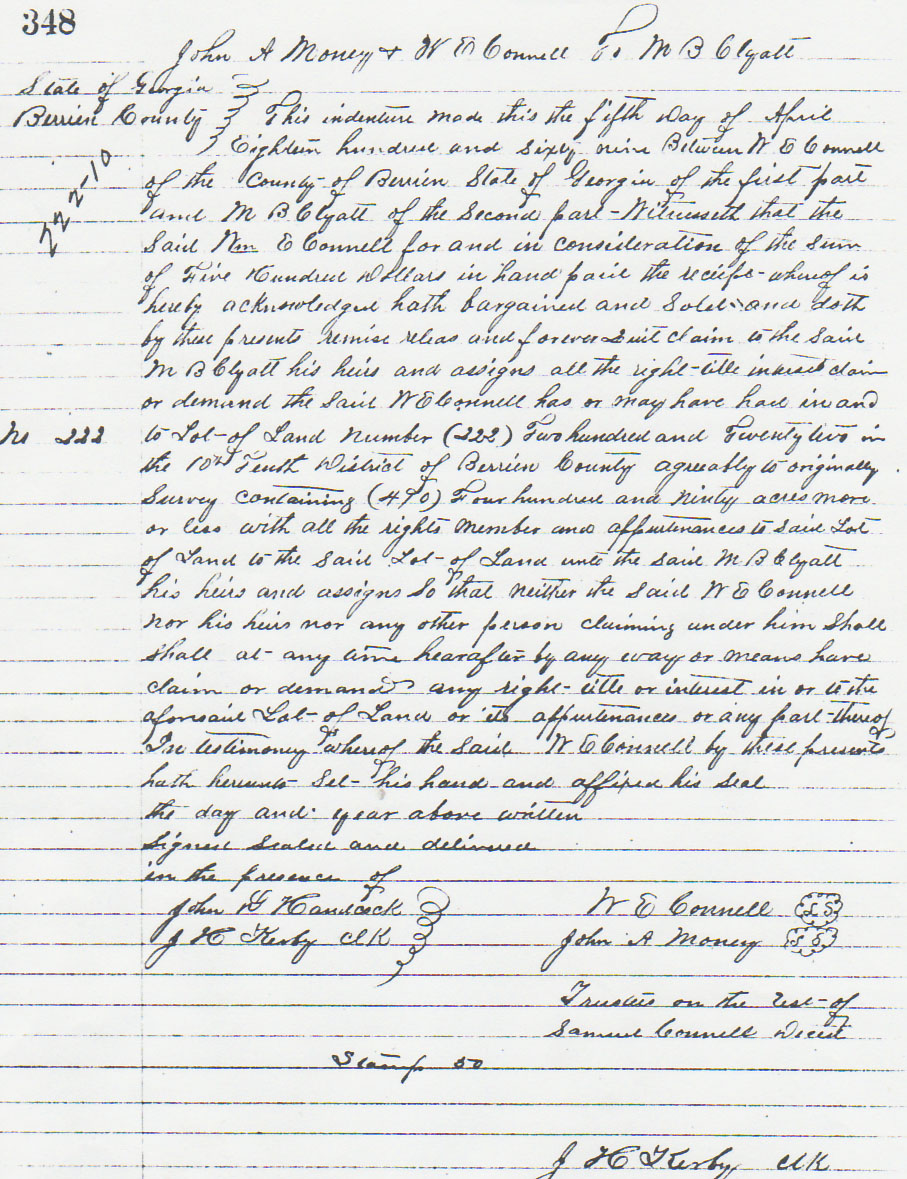 348
John A Money & W E Connell To M B Clyatt
State of Georgia
Berrien County This indenture made this the fifth day of April
Eighteen hundred and Sixty nine Between W E Connell
222-10
of the County of Berrien State of Georgia of the first part
and M B Clyatt of the Second part - Witnesseth that the
Said Wm E Connell for and in consideration of the Sum
of Five Hundred Dollars in hand paid the receipt whereof is
hereby acknowledged hath bargained and Sold and doth
by these presents remise releas and forever Quit claim to the Said
M B Clyatt his heirs and assigns all the right title interest claim
or demand the Said W E Connell has or may have had in and
No 222 to Lot of Land Number (222) Two hundred and Twenty two in
the 10th Tenth District of Berrien County agreeably to originally
Survey containing (490) Four hundred and Ninty acres more
or less with all the rights member and appurtenances to said Lot
of Land to the Said Lot of Land unto the Said M B Clyatt
his heirs and assigns So that neither the Said W E Connell
nor his heirs nor any other person claiming under him Shall
Shall at any time hearafter by any way or means have
claim or demand any right title or interest in or to the
aforsaid Lot of Land or its appurtenances or any part thereof
In testimony whereof the Said W E Connell by these presents
hath hereunto Set his hand and affixed his Seal
the day and year above written
Signed Sealed and delivered
in the presence of
John G Handcock W E Connell LS
J H Kerby Clk John A Money LS
Trustees on the Est of
Samuel Connell Decest
Stamp 50
J H Kerby Clk